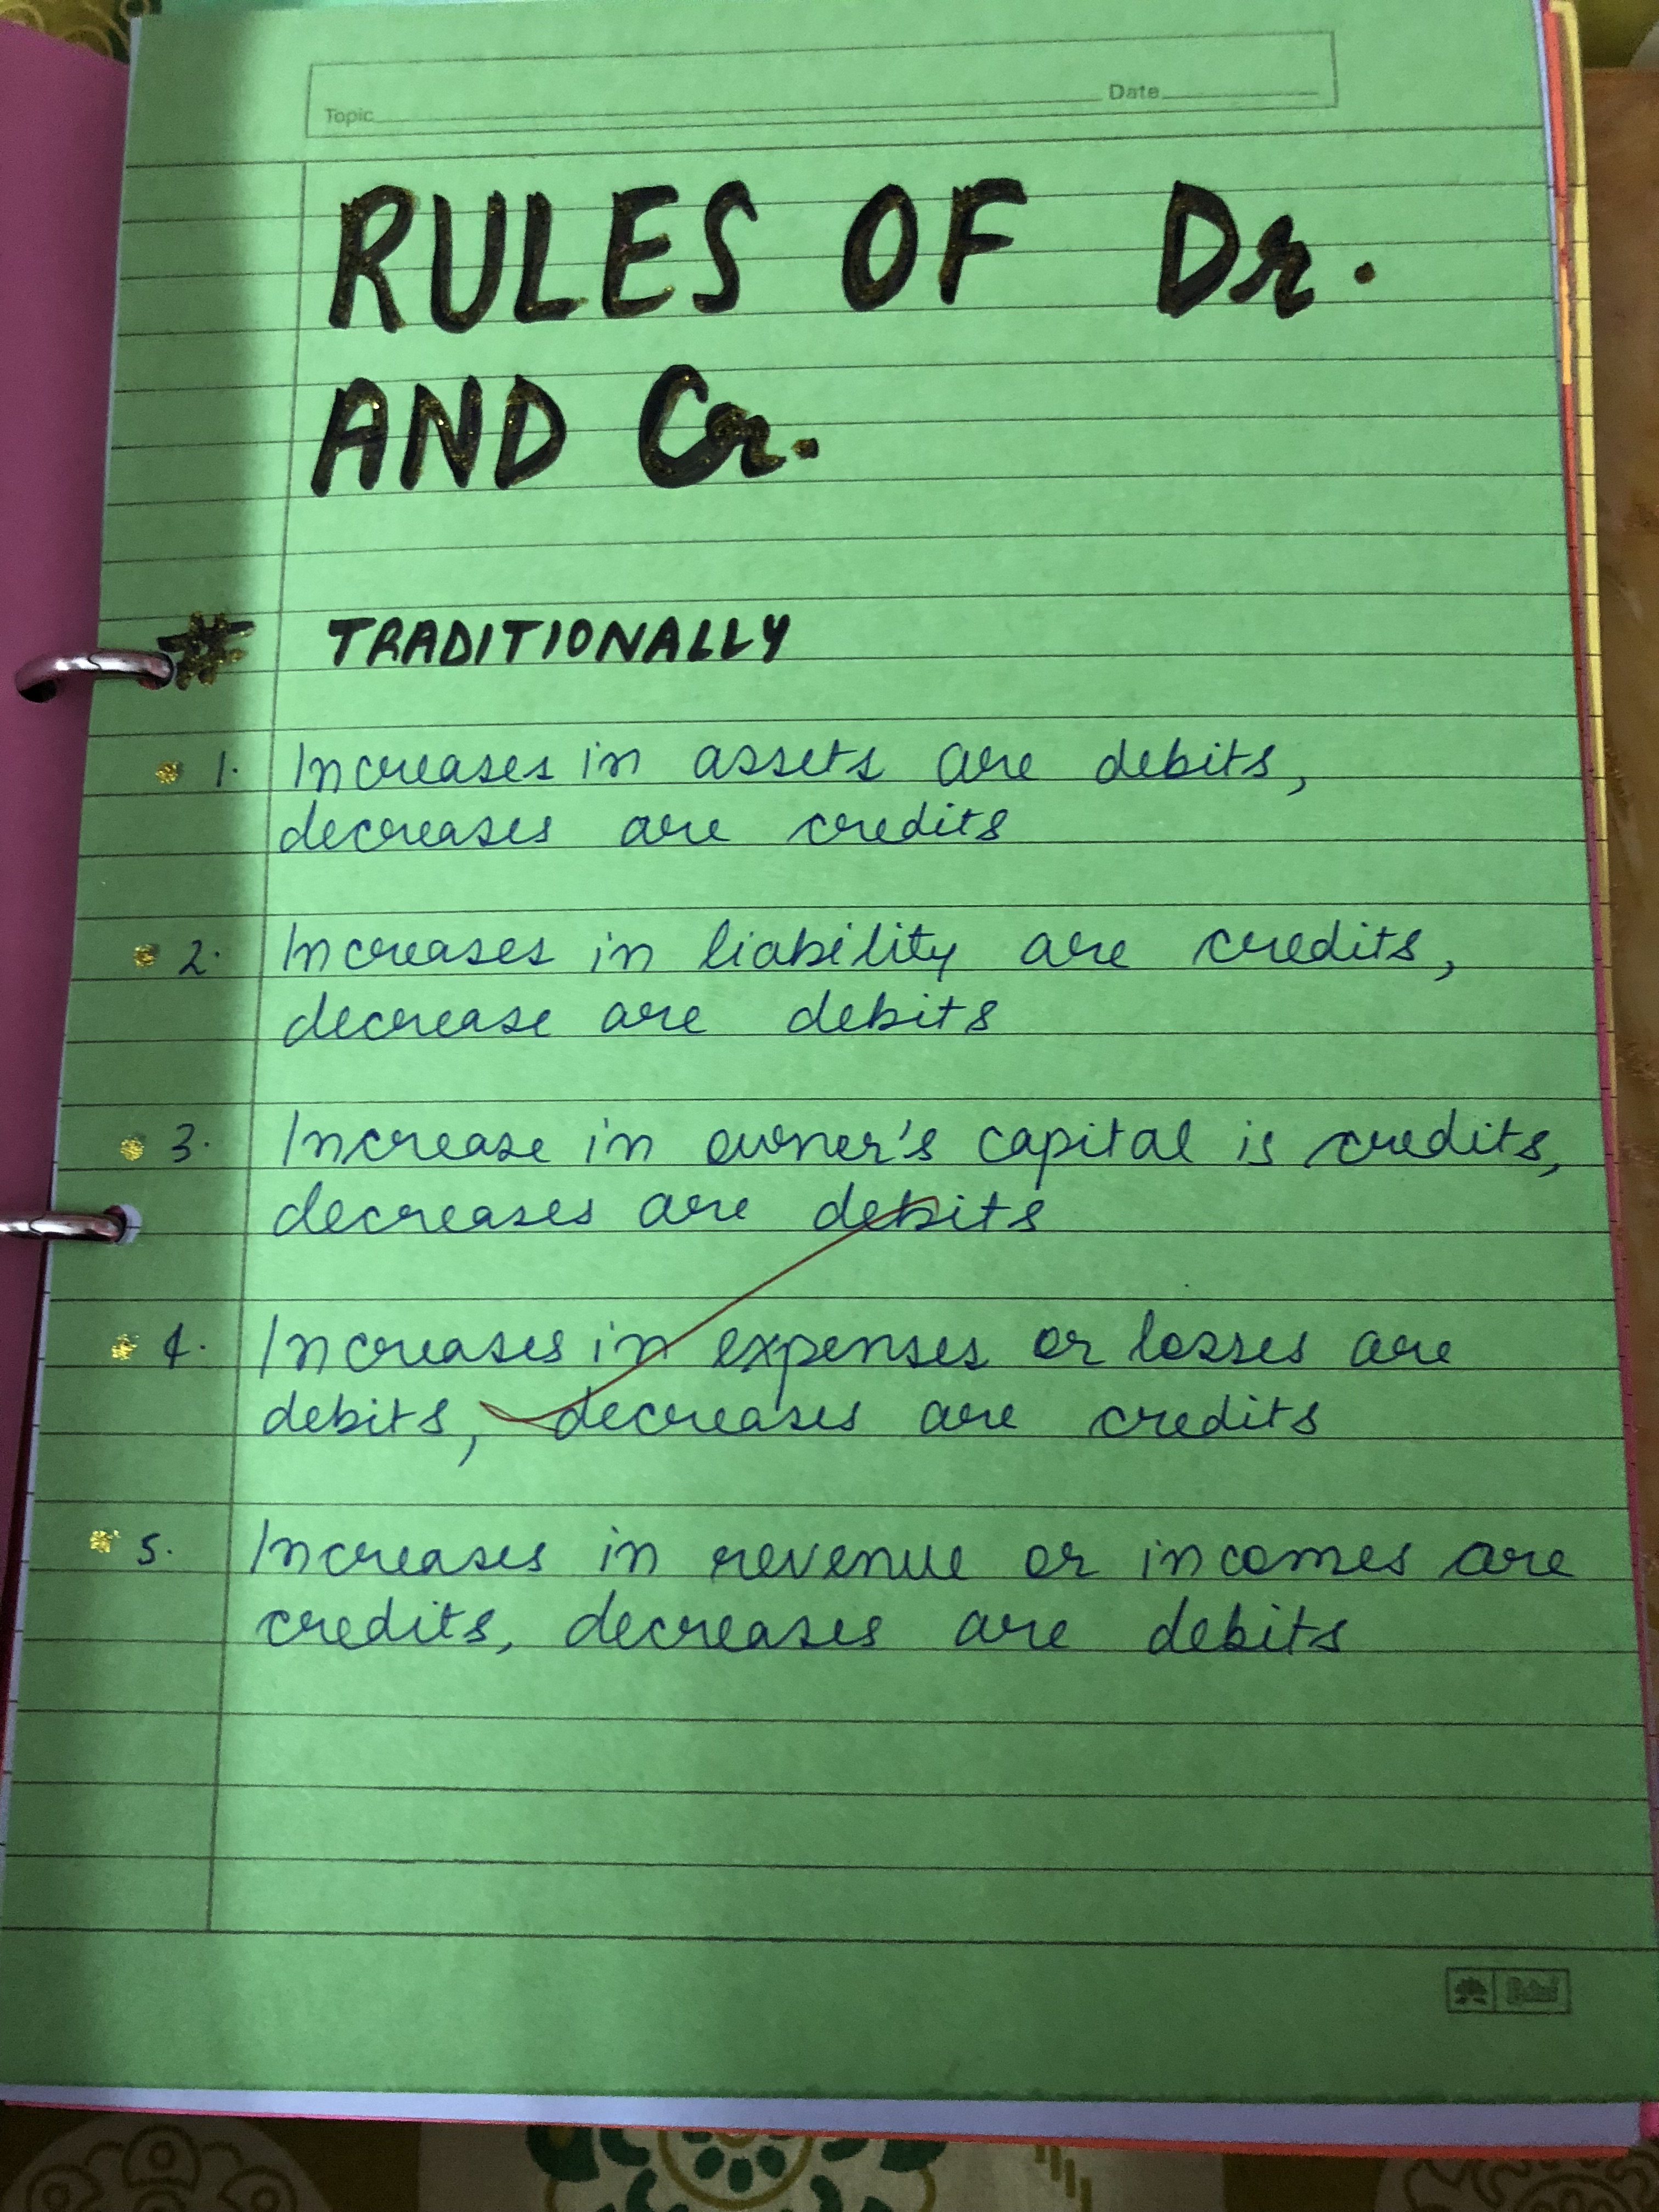 Topic Date
RULES OF Dr.
AND Cr.
# TRADITIONALLY
1. Increases in assets are debits,
decreases are credits
2. Increases in liability are credits,
decrease are debits
3. Increase in owner's capital is credits,
decreases are debits
4. Increases in expenses or losses are
debits, decreases are credits
5. Increases in revenue or incomes are
credits, decreases are debits